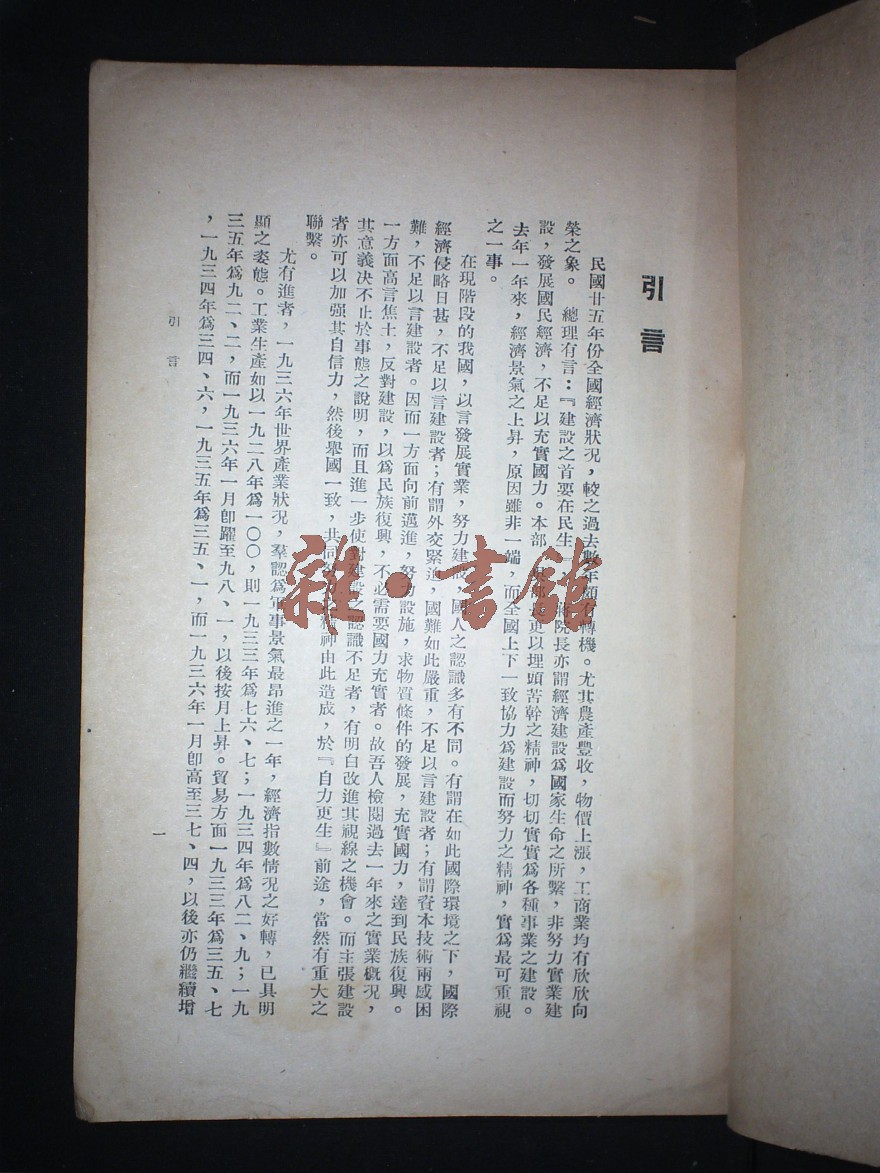 引言
民國廿五年份全國經濟狀況，較之過去數年頗有轉機。尤其農產豐收，物價上漲，工商業均有欣欣向
榮之象。　總理有言：『建設之首要在民生』　蔣院長亦謂經濟建設爲國家生命之所繫，非努力實業建
設，發展國民經濟，不足以充實國力。本部　部長更以埋頭苦幹之精神，切切實實爲各種事業之建設。
去年一年來，經濟景氣之上昇，原因雖非一端，而全國上下一致協力爲建設而努力之精神，實爲最可重視
之一事。
在現階段的我國，以言發展實業，努力建設，國人之認識多有不同。有謂在如此國際環境之下，國際
經濟侵略日甚，不足以言建設者；有謂外交緊迫，國難如此嚴重，不足以言建設者；有謂資本技術兩感困
難，不足以言建設者。因而一方面向前邁進，努力設施，求物質條件的發展，充實國力，達到民族復興。
一方面高言焦土，反對建設，以爲民族復興，不必需要國力充實者。故吾人檢閱過去一年來之實業概況，
其意義决不止於事態之說明，而且進一步使對建設之認識不足者，有明白改進其視線之機會。而主張建設
者亦可以加强其自信力，然後舉國一致，共同　精神由此造成，於『自力更生』前途，當然有重大之
聯繫。
尤有進者，一九三六年世界產業狀況，羣認爲軍事景氣最昂進之一年，經濟指數情況之好轉，已具明
顯之姿態。工業生產如以一九二八年爲一〇〇，則一九三三年爲七六、七；一九三四年爲八二、九；一九
三五年爲九二、二，而一九三六年一月卽躍至九八、一，以後按月上昇。貿易方面一九三三年爲三五、七
，一九三四年爲三四、六，一九三五年爲三五、一，而一九三六年一月卽高至三七、四，以後亦仍繼續增
引言
一
雜·書館